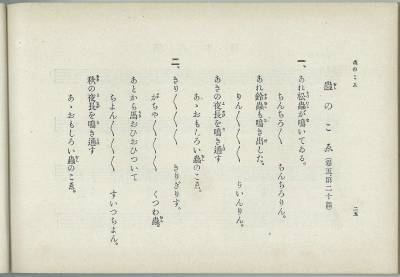 蟲のこゑ
蟲のこゑ（巻五第二十課）
二五
一、あれ松蟲が鳴いてゐる。
ちんちろ〱〱 ちんちろりん。
あれ鈴蟲も鳴き出した。
りん〱〱〱 りいんりん。
あきの夜長を鳴き通す
あゝおもしろい蟲のこゑ。
二、きり〱〱〱 きりぎりす。
がちや〱〱〱 くつわ蟲。
あとから馬おひおひついて
ちよん〱〱〱 すいつちよん。
秋の夜長を鳴き通す
あゝおもしろい蟲のこゑ。